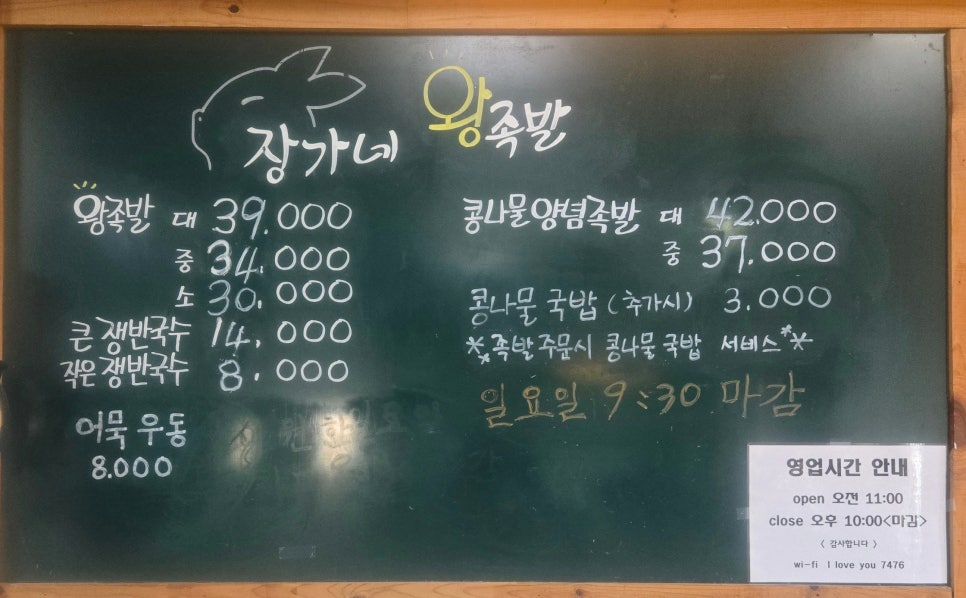 장가네 왕족발
왕족발 대 39.000
중 34.000
소 30.000
큰 쟁반국수 14.000
작은 쟁반국수 8.000
어묵 우동
8.000
콩나물양념족발 대 42.000
중 37.000
콩나물 국밥 (추가시) 3.000
**족발 주문시 콩나물 국밥 서비스**
일요일 9:30 마감
영업시간 안내
open 오전 11:00
close 오후 10:00<마감>
< 감사합니다 >
wi-fi I love you 7476